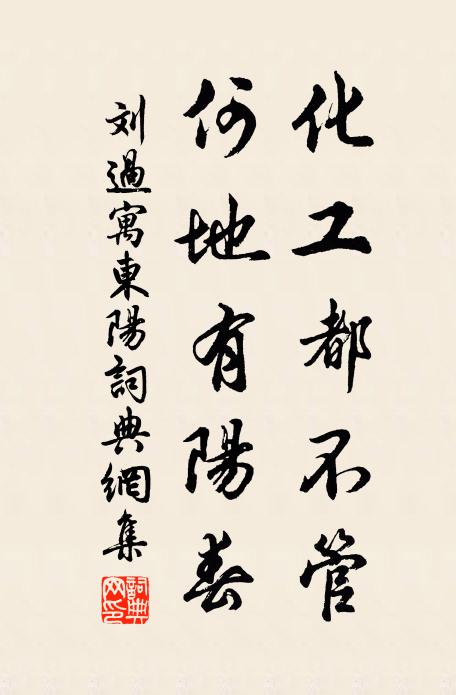 化工都不管
何地有陽春
劉過寓東陽詞典網集
詞典
网印